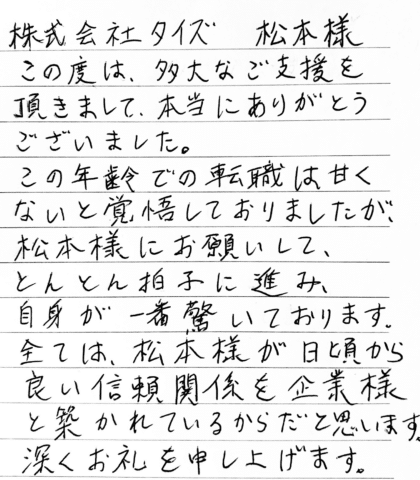 株式会社タイズ　松本様
この度は、多大なご支援を
頂きまして、本当にありがとう
ございました。
この年齢での転職は甘く
ないと覚悟しておりましたが、
松本様にお願いして、
とんとん拍子に進み、
自身が一番驚いております。
全ては、松本様が日頃から
良い信頼関係を企業様
と築かれているからだと思います。
深くお礼を申し上げます。